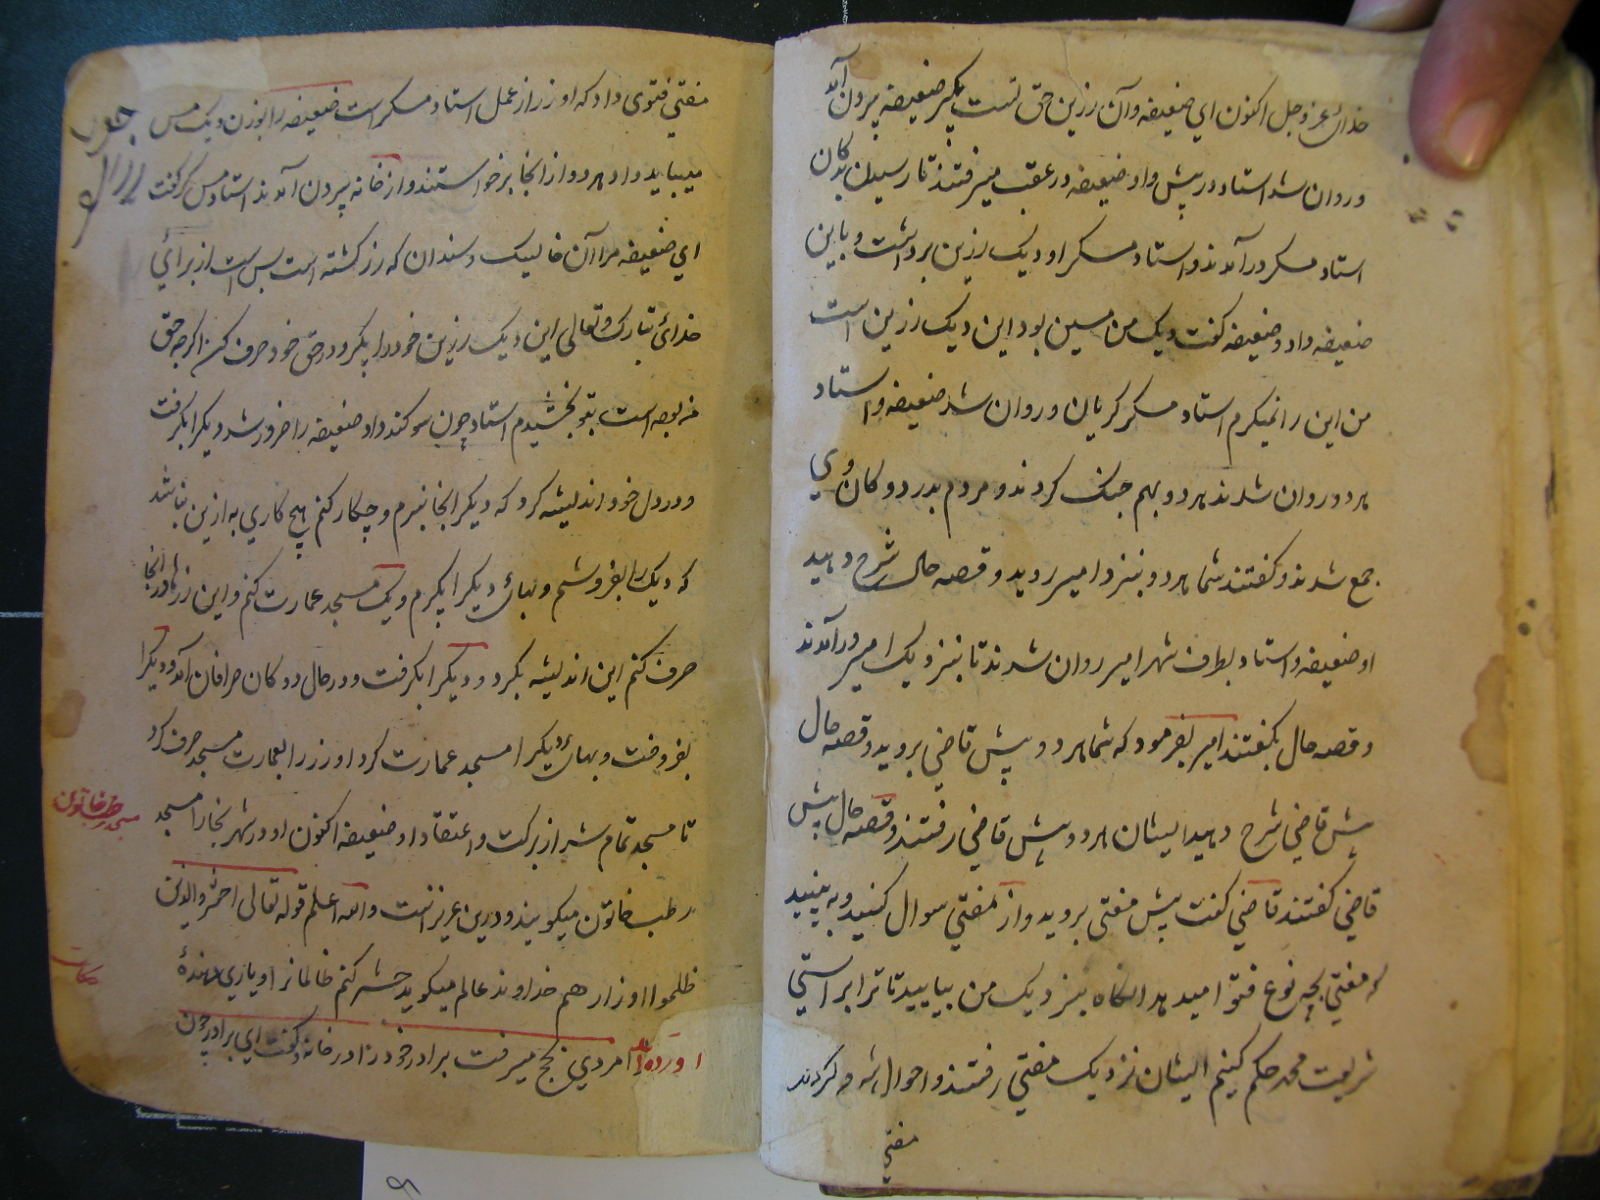 خدای عز و جل اکنون ای ضعیفه و آن زرین حق تست بکیر ضعیفه بیرون آمد
و روان شد استاد در پیش و او ضعیفه در عقب میرفتند تا رسیدن بدکان
استاد مسکر در آمدند و استاد مسکر او دیک زرین برداشت و باین
ضعیفه داد و ضعیفه کفت دیک من مسین بود این دیک زرین است
من این را نمیکرم استاد مسکر کریان و روان شد ضعیفه و استاد
هردو روان شدند هردو بهم جنک کردند و مردم بدر دوکان وی
جمع شدند و کفتند شما هردو بنزد امیر روید و قصه حال شرح دهید
او ضعیفه و استاد بطرف شهر امیر روان شدند تا بنزدیک امیر درآمدند
و قصه حال بکفتند امیر بفرمود که شما هردو پیش قاضی بروید و قصه حال
پیش قاضی شرح دهید ایشان هردو پیش قاضی رفتند و قصه حال پیش
قاضی کفتند قاضی کفت پیش مفتی بروید و از مفتی سوال کنید و به بینید
که مفتی بچه نوع فتوا میدهد انکاه بنزدیک من بیایید تا ترا براستی
شریعت محمد حکم کنیم ایشان نزدیک مفتی رفتند و احوال شرح کردند
مفتی
مفتی فتوی داد که او زر از عمل استاد مسکر است ضعیفه را بوزن دیک مس
میباید داد هردو از انجا برخواستند و از خانه بیرون آمدند استاد مس کر کفت
ای ضعیفه مرا آن خایسک و سندان که زر کشته است بس است از برای
خدای تبارک و تعالی این دیک زرین خود را بکیر و در حق خود صرف کن اکرچه حق
من بوده است بتو بخشیدم استاد چون سوکند داد ضعیفه را ضرور شد دیکرا بکرفت
و در دل خود اندیشه کرد که دیکر انجا نبرم و چکار کنم هیچ کاری به ازین نباشد
که دیک را بفروشم و بهای دیکرا بکیرم و یک مسجد عمارت کنم و این زرها در انجا
صرف کنم این اندیشه بکرد و دیکرا بکرفت و در حال دوکان صرافان آمد و دیکرا
بفروخت و بهای دیکرا مسجد عمارت کرد او زر را بعمارت مسجد صرف کرد
تا مسجد تمام شد از برکت و اعتقاد او ضعیفه اکنون او در شهر بخارا مسجد
رطب خاتون میکویند و درین عزیز است والله اعلم قوله تعالی احشروا الذین
ظلموا و ازواجهم خداوند عالم میکوید حشر کنم ظالمانرا و یاری دهندهٔ
اورده اند مردی بحج میرفت برادر خود را در خانه و کفت ای برادر چون
مسجد رطب خاتون
حکایت